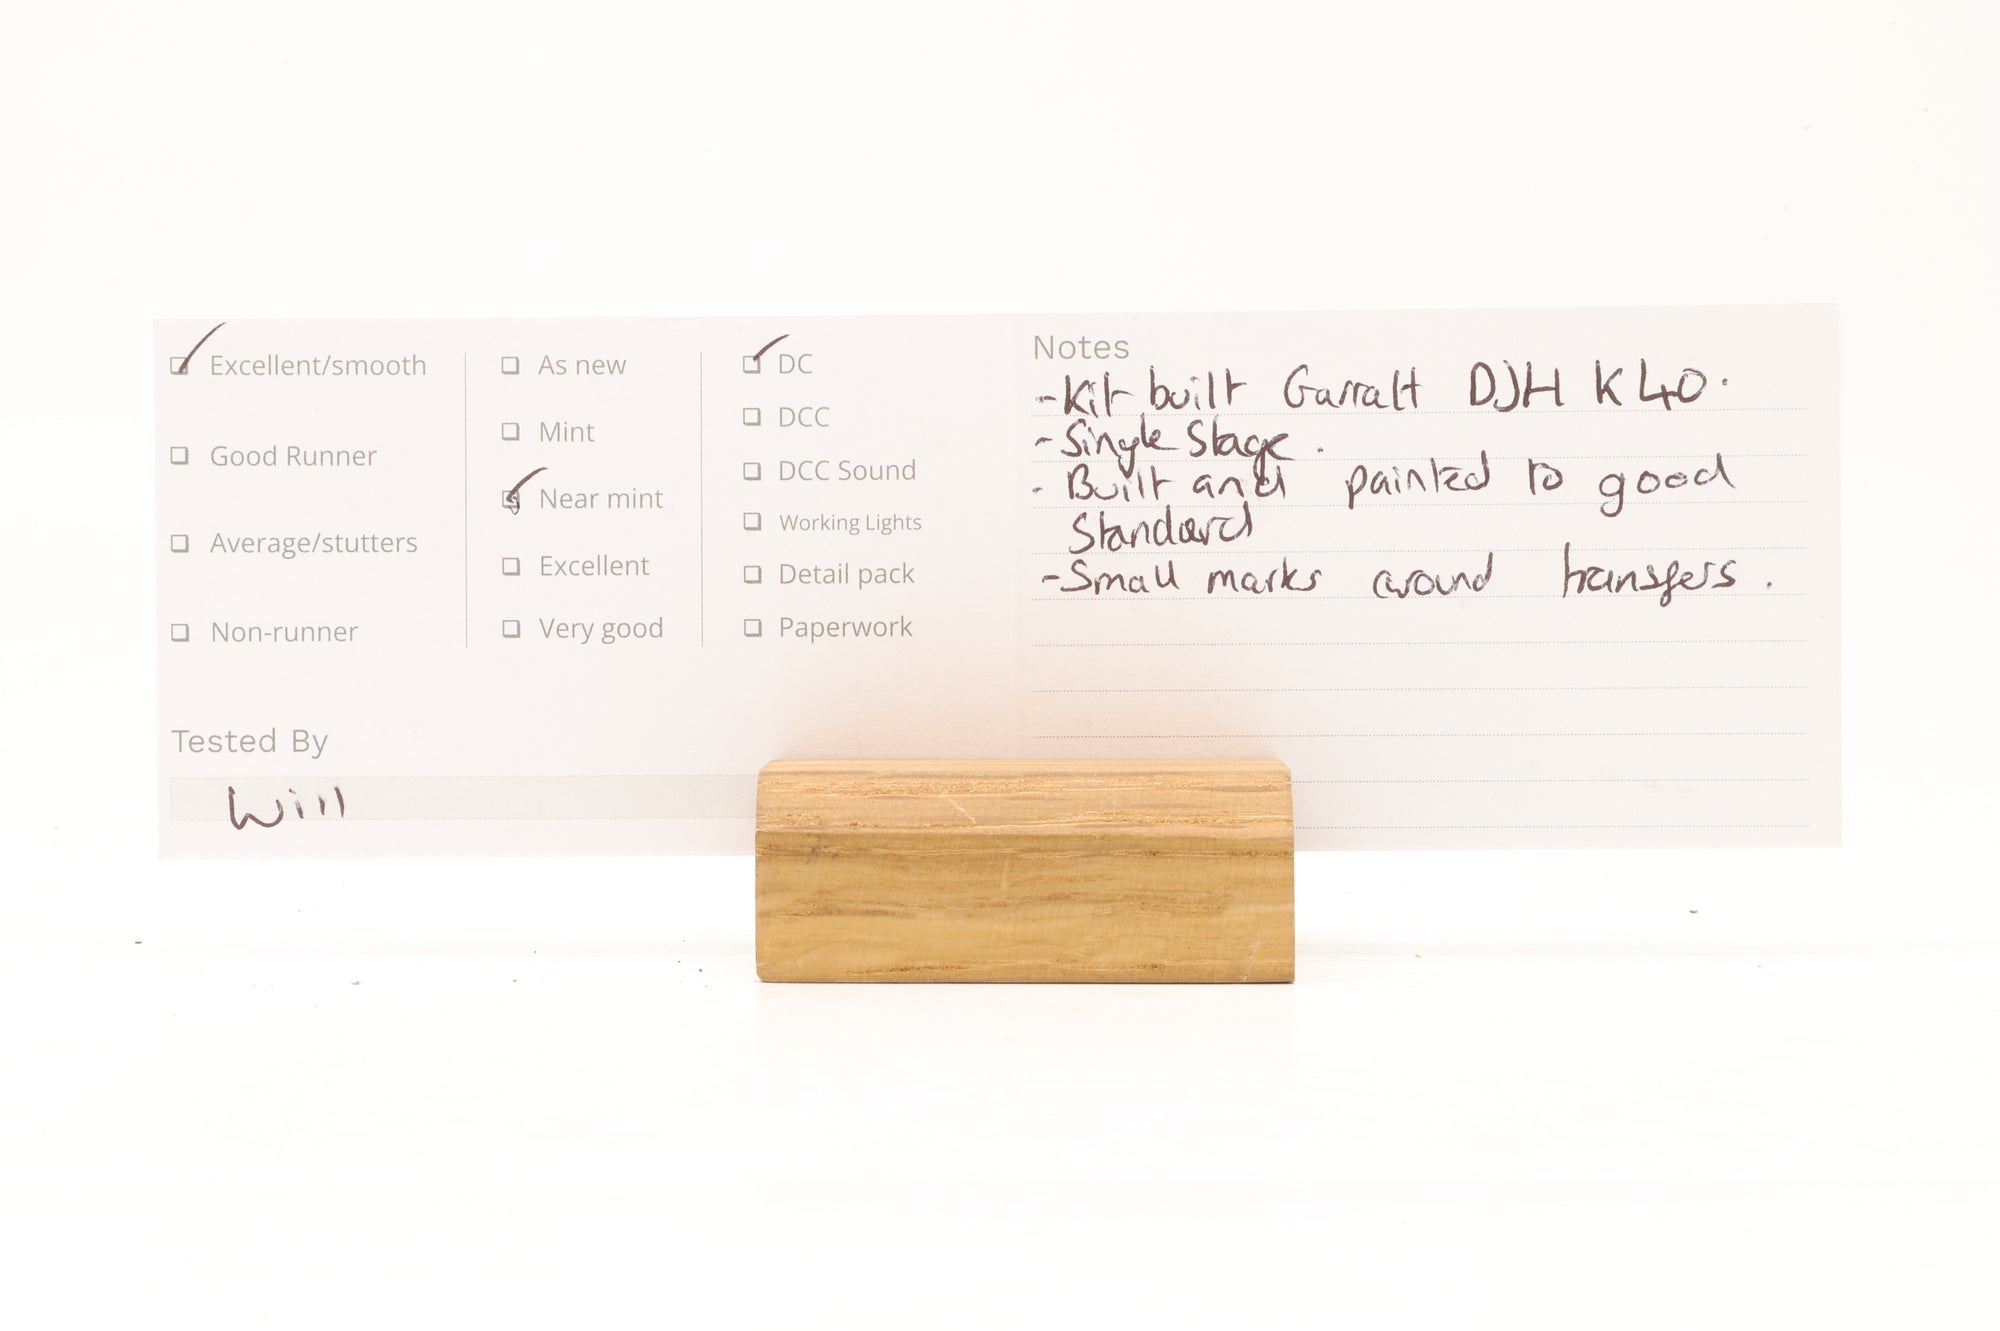 Excellent/smooth
Good Runner
Average/stutters
Non-runner
As new
Mint
Near mint
Excellent
Very good
DC
DCC
DCC Sound
Working Lights
Detail pack
Paperwork
Tested By
Will
Notes
- Kit built Garratt DJH K40.
- Single Stage.
- Built and painted to good
Standard
- Small marks around transfers.